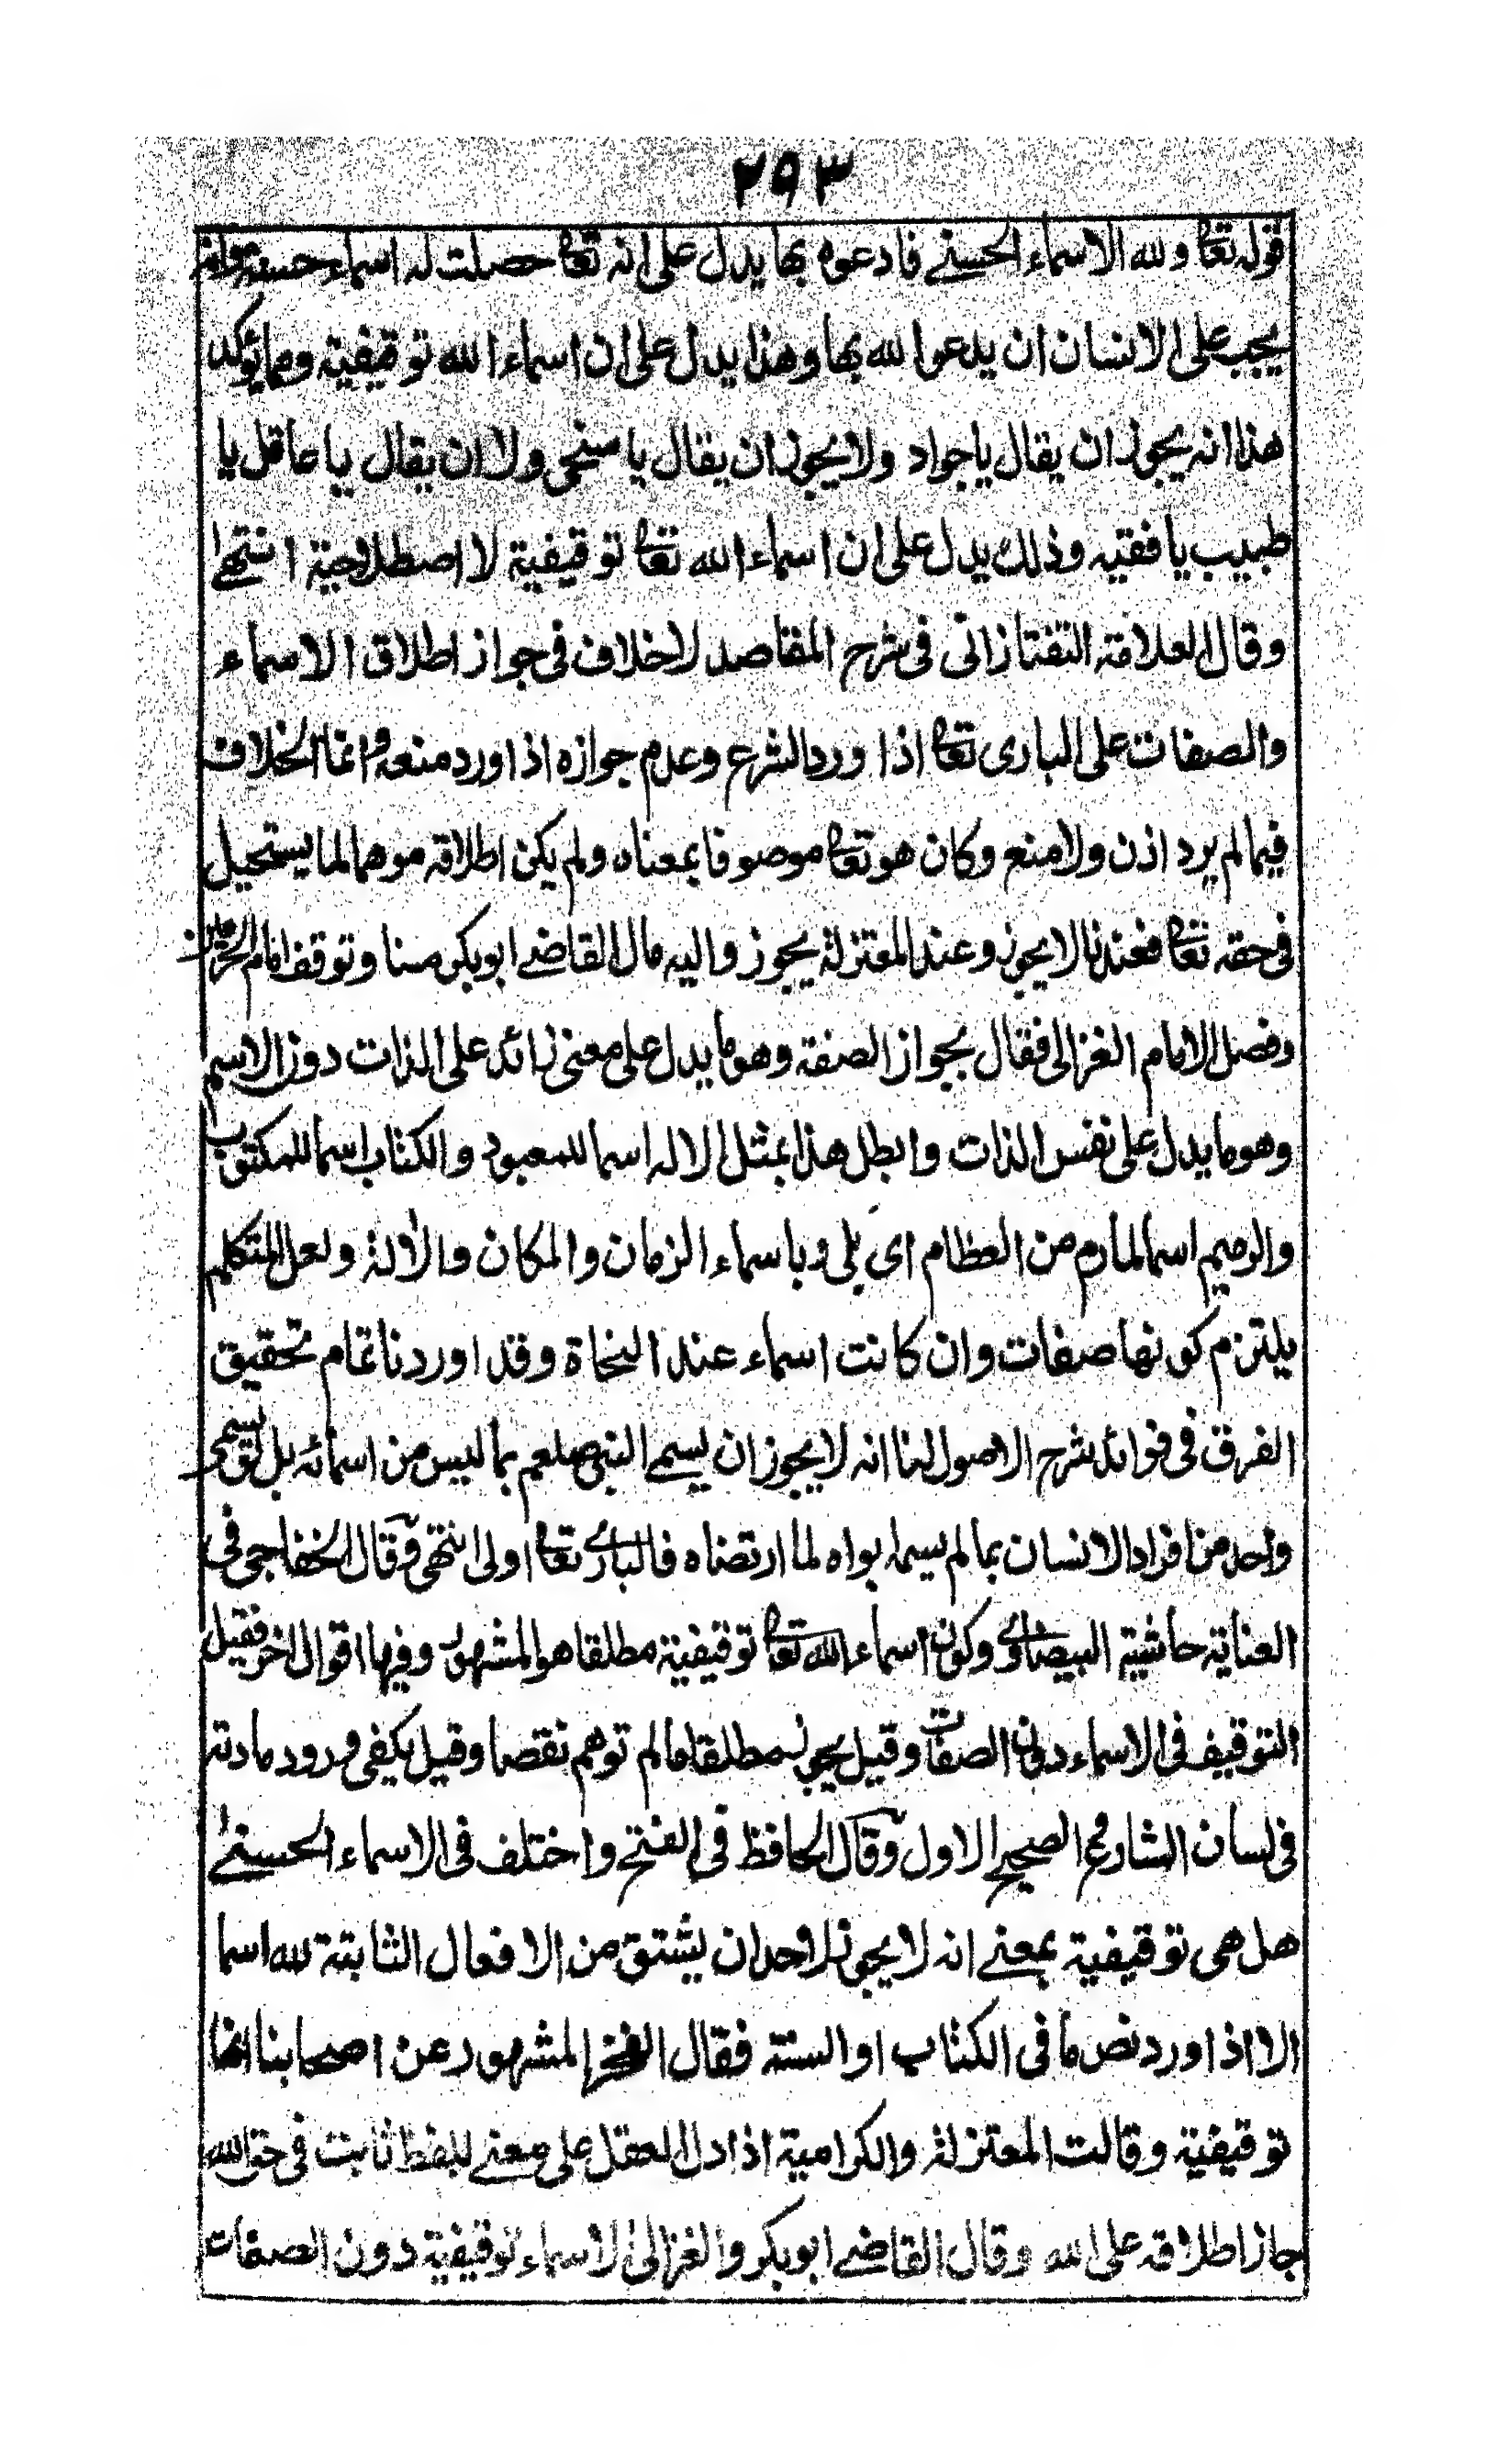 ٢٩٣
قوله تعالى ولله الاسماء الحسنى فادعوه بها يدل على انه تعالى حصلت له اسماء حسنة وانه
يجب على الانسان ان يدعوا لله بها وهذا يدل على ان اسماء الله توقيفية ومما يؤكد
هذا انه يجوز ان يقال يا جواد ولا يجوز ان يقال يا سخى ولا ان يقال يا عاقل يا
طبيب يا فقيه وذلك يدل على ان اسماء الله تعالى توقيفية لا اصطلاحية انتهى
وقال العلامة التفتازانى فى شرح المقاصد لا خلاف فى جواز اطلاق الاسماء
والصفات على البارى تعالى اذا ورد الشرع وعدم جوازه اذا ورد منعه وانما الخلاف
فيما لم يرد اذن ولا منع وكان هو تعالى موصوفا بمعناه ولم يكن اطلاقه موهما لما يستحيل
فى حقه تعالى فعندنا لا يجوز وعند المعتزلة يجوز واليه مال القاضى ابوبكر منا وتوقف امام الحرمين
وفصل الامام الغزالى فقال بجواز الصفة وهو ما يدل على معنى زائد على الذات دون الاسم
وهو ما يدل على نفس الذات وابطل هذا بمثل الاله اسما للمعبود والكتاب اسما للمكتوب
والرميم اسما لما رم من العظام اى بلى وباسماء الزمان والمكان والالة ولعل المتكلم
يلتزم كونها صفات وان كانت اسماء عند النحاة وقد اوردنا تمام تحقيق
الفرق فى فوائد شرح الاصول لنا انه لا يجوز ان يسمى النبى صلعم بما ليس من اسمائه بل لو سمى
واحد من افراد الانسان بما لم يسمه ابواه لما ارتضاه فالبارى تعالى اولى انتهى وقال الخفاجى فى
العناية حاشية البيضاوى وكون اسماء الله تعالى توقيفية مطلقا هو المشهور وفيها اقوال اخر فقيل
التوقيف فى الاسماء دون الصفات وقيل يجوز مطلقا ما لم توهم نقصا وقيل يكفى ورود مادته
فى لسان الشارع والصحيح الاول وقال الحافظ فى الفتح واختلف فى الاسماء الحسنى
هل هى توقيفية بمعنى انه لا يجوز لاحد ان يشتق من الافعال الثابتة لله اسما
الا اذا ورد نص ما فى الكتاب او السنة فقال الفخر المشهور عن اصحابنا انها
توقيفية وقالت المعتزلة والكرامية اذا دل العقل على معنى للفظ ثابت فى حق الله
جاز اطلاقه على الله وقال القاضى ابوبكر والغزالى الاسماء توقيفية دون الصفات